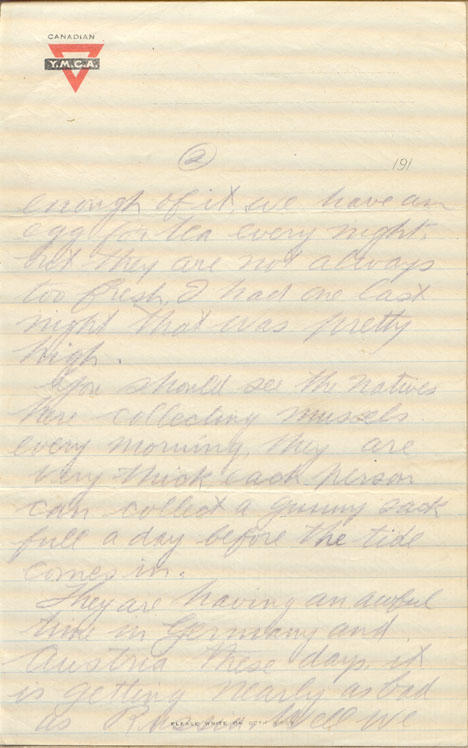 CANADIAN
Y.M.C.A.
2
191
enough of it, we have an
egg for tea every night,
but they are not always
too fresh, I had one last
night that was pretty
high.
You should see the natives
here collecting mussels
every morning, they are
very thick each person
can collect a gunny sack
full a day before the tide
comes in.
They are having an awful
time in Germany and
Austria these days, it
is getting nearly as bad
as Russia. Well we
PLEASE WRITE ON BOTH SIDES